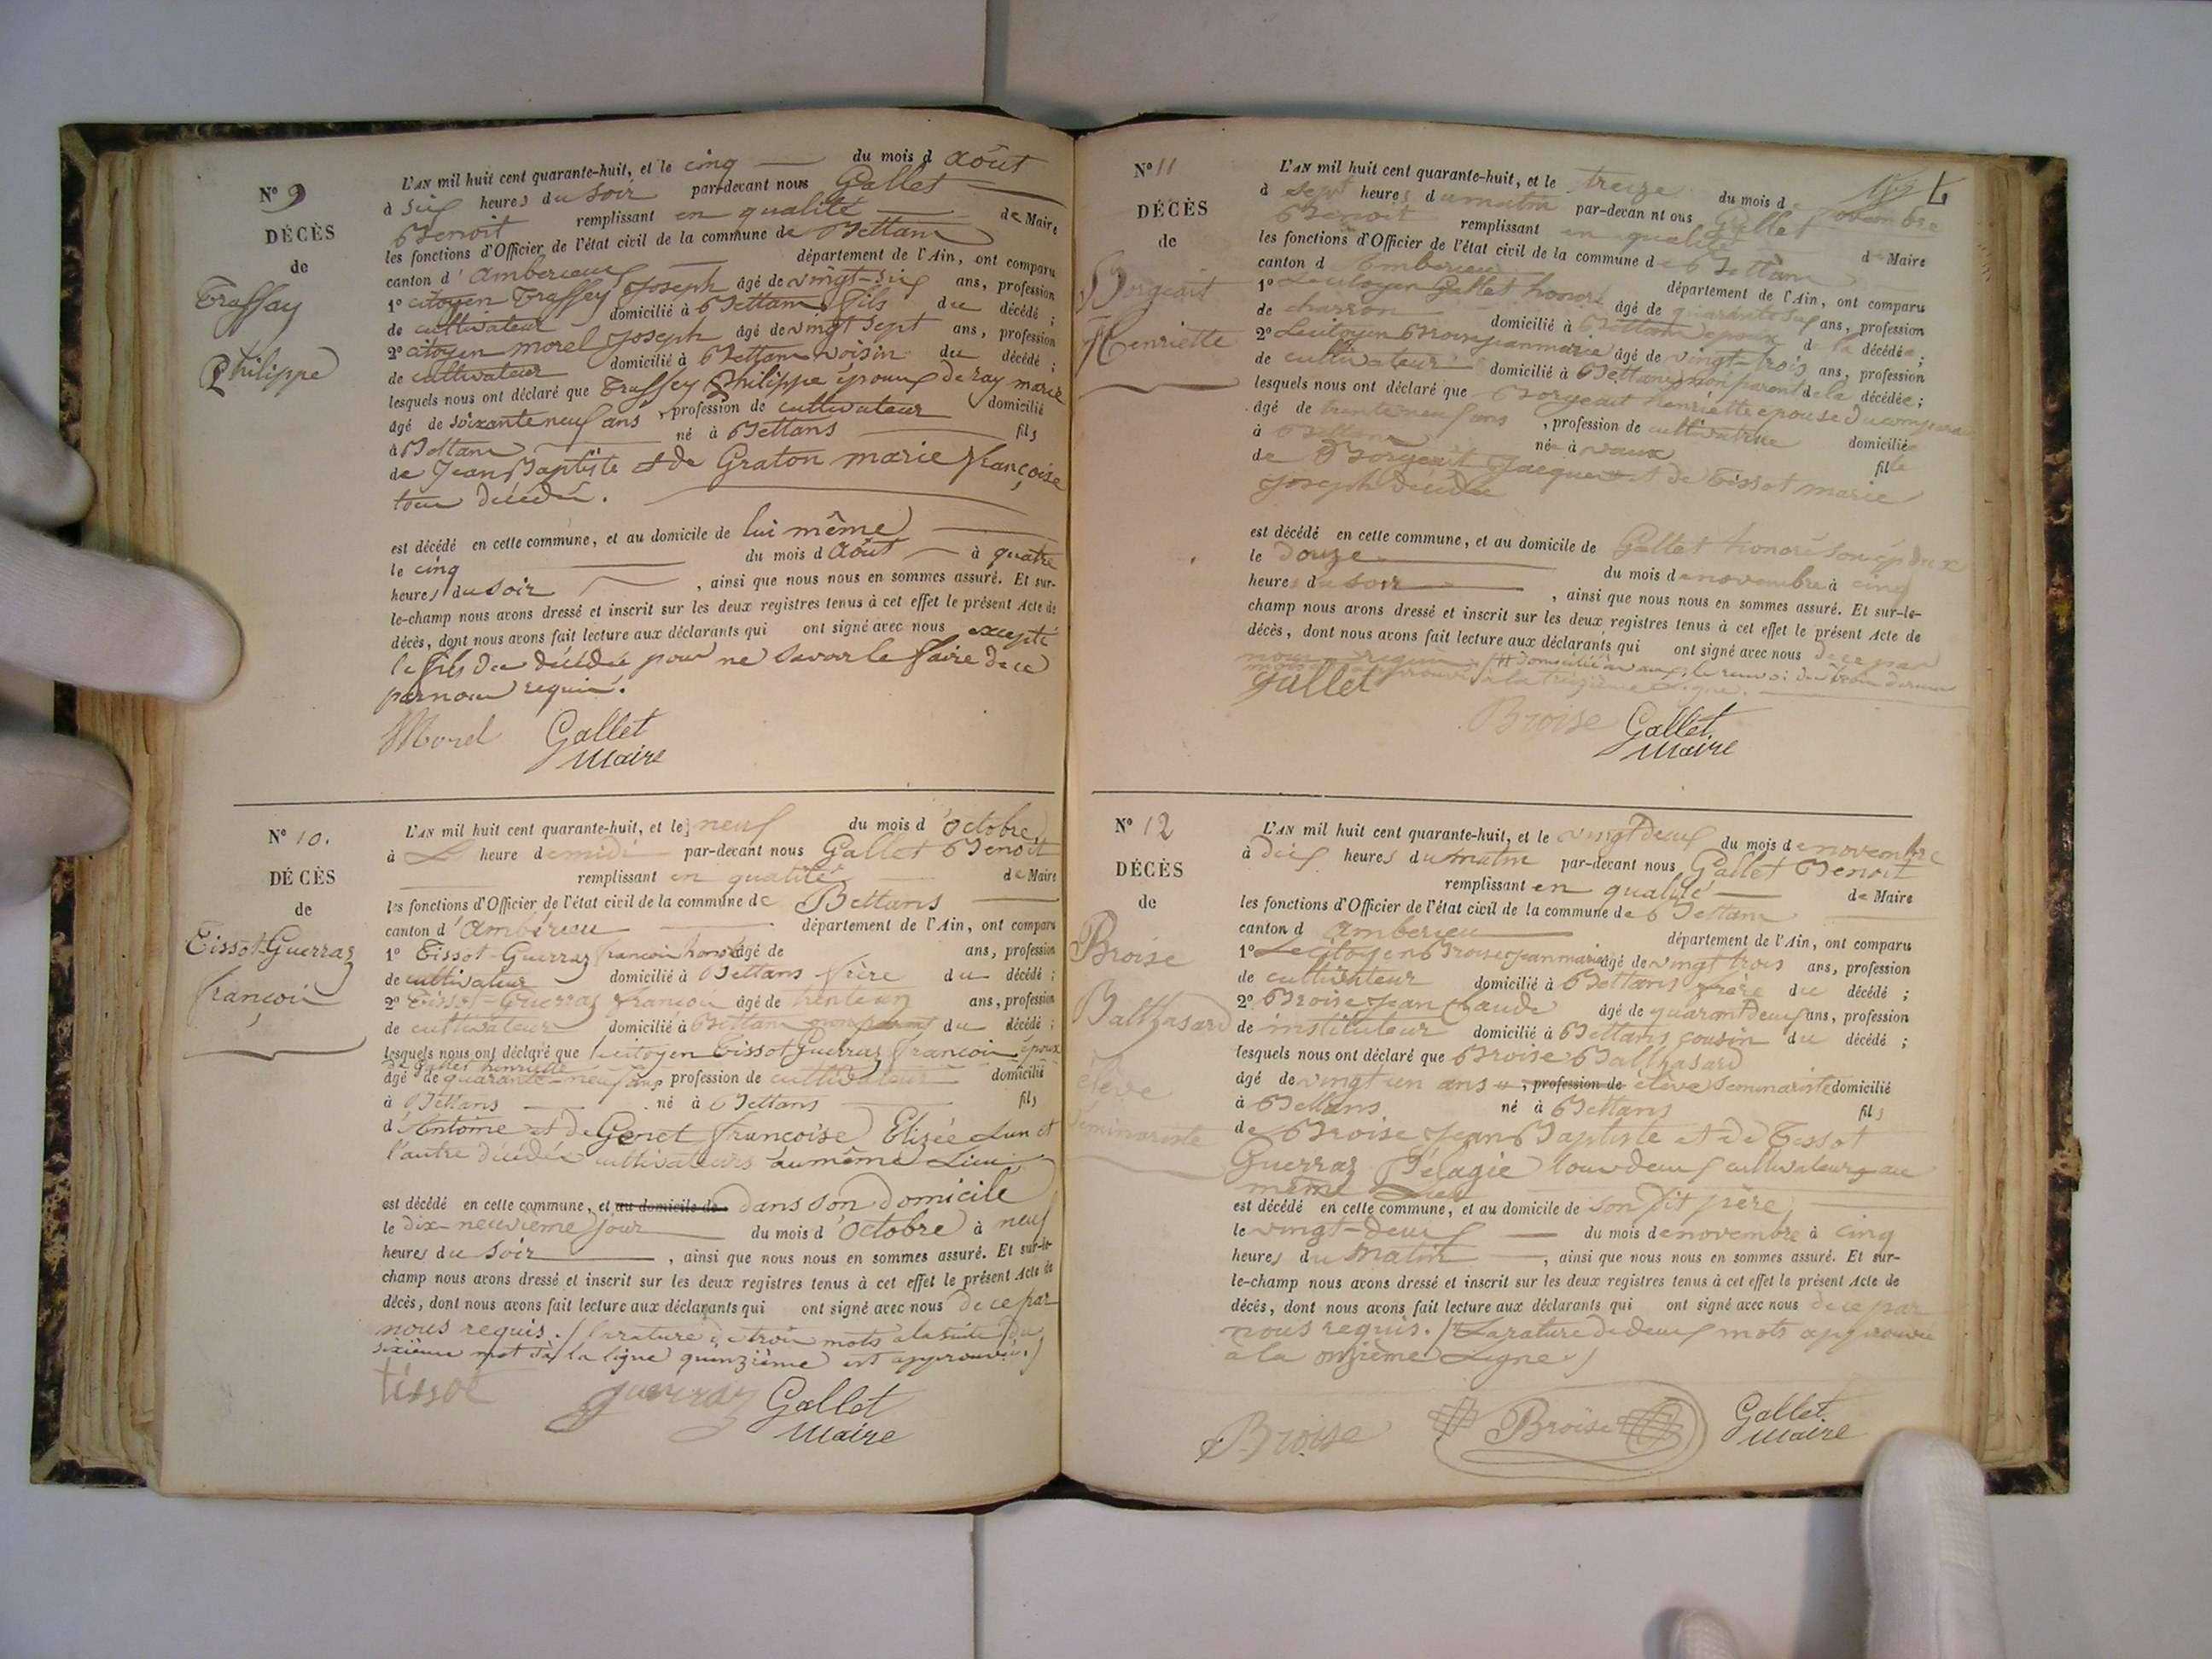 N° 9
DÉCÈS
de
Traffay
Philippe
L'AN mil huit cent quarante-huit, et le cinq du mois d août
à six heures du soir par-devant nous Gallet
Benoit remplissant en qualité de Maire
les fonctions d'Officier de l'état civil de la commune de Bettans
canton d'Amberieux département de l'Ain, ont comparu
1° citoyen Traffey Joseph âgé de vingt-six ans, profession
de cultivateur domicilié à Bettans fils du décédé ;
2° citoyen morel Joseph âgé de vingt sept ans, profession
de cultivateur domicilié à Bettans voisin du décédé ;
lesquels nous ont déclaré que Traffey Philippe époux de ray marie
âgé de soixante neuf ans, profession de cultivateur domicilié
à Bettans né à Bettans fils
de Jean Baptiste et de Graton marie françoise
tous décédés.
est décédé en cette commune, et au domicile de lui même
le cinq du mois d août à quatre
heures du soir, ainsi que nous nous en sommes assuré. Et sur-
le-champ nous avons dressé et inscrit sur les deux registres tenus à cet effet le présent Acte de
décès, dont nous avons fait lecture aux déclarants qui ont signé avec nous excepté
le fils du décédé pour ne savoir le faire de ce
par nous requis.
Morel Gallet
Maire
N° 10.
DÉCÈS
de
Tissot-Guerraz
françois
L'AN mil huit cent quarante-huit, et le neuf du mois d'octobre
à heure de midi par-devant nous Gallet Benoit
remplissant en qualité de Maire
les fonctions d'Officier de l'état civil de la commune de Bettans
canton d'Ambérieu département de l'Ain, ont comparu
1° Tissot-Guerraz francois honoré âgé de ans, profession
de cultivateur domicilié à Bettans frère du décédé ;
2° Tissot-Guerraz françois âgé de trente un ans, profession
de cultivateur domicilié à Bettans non parent du décédé ;
lesquels nous ont déclaré que le citoyen Tissot Guerraz francois époux
de henriette
âgé de quarante-neuf ans profession de cultivateur domicilié
à Bettans né à Bettans fils
d'Antoine et de Genet françoise Elizée L'un et
l'autre décédés cultivateurs au même Lieu
est décédé en cette commune, et au domicile de dans son domicile
le dix-neuvième jour du mois d'octobre à neuf
heures du soir, ainsi que nous nous en sommes assuré. Et sur-le-
champ nous avons dressé et inscrit sur les deux registres tenus à cet effet le présent Acte de
décès, dont nous avons fait lecture aux déclarants qui ont signé avec nous de ce par
nous requis. / la rature de trois mots à la suite du
sixieme mot de la ligne quinzième est approuvée. /
tissot guerraz Gallet
Maire
N° 11
DÉCÈS
de
Borgeait
Henriette
L'AN mil huit cent quarante-huit, et le treize du mois de novembre
à sept heures du matin par-devant nous Gallet
Benoit remplissant en qualité de Maire
les fonctions d'Officier de l'état civil de la commune de Bettans
canton d'Amberieu département de l'Ain, ont comparu
1° Le citoyen Gallet honoré âgé de quarante six ans, profession
de charron domicilié à Bettans epoux de la décédée ;
2° Le citoyen Broise jean marie âgé de vingt-trois ans, profession
de cultivateur domicilié à Bettans non parent de la décédée ;
lesquels nous ont déclaré que Borgeait henriette epouse du comparant
âgé de trente neuf ans, profession de cultivatrice domiciliée
à Bettans née à vaux fille
de Borgeait Jacques et de Tissot marie
Joseph décédés
est décédé en cette commune, et au domicile de Gallet honoré son époux
le douze du mois de novembre à cinq
heures du soir, ainsi que nous nous en sommes assuré. Et sur-le-
champ nous avons dressé et inscrit sur les deux registres tenus à cet effet le présent Acte de
décès, dont nous avons fait lecture aux déclarants qui ont signé avec nous de ce par
nous requis / domiciliés à vaux, le renvoi de trois derniers
mots approuvé à la treizième Ligne.
Gallet
Broise Gallet
Maire
N° 12
DÉCÈS
de
Broise
Balthasard
élève
séminariste
L'AN mil huit cent quarante-huit, et le vingt deux du mois de novembre
à dix heures du matin par-devant nous Gallet Benoit
remplissant en qualité de Maire
les fonctions d'Officier de l'état civil de la commune de Bettans
canton d Amberieu département de l'Ain, ont comparu
1° Le citoyen Broise Jean marie âgé de vingt trois ans, profession
de cultivateur domicilié à Bettans frère du décédé ;
2° Broise Jean Claude âgé de quarante deux ans, profession
de instituteur domicilié à Bettans cousin du décédé ;
lesquels nous ont déclaré que Broise Balthasard
âgé de vingt un ans, profession de élève seminariste domicilié
à Bettans né à Bettans fils
de Broise Jean Baptiste et de Tissot
Guerraz Pélagie tous deux cultivateurs au
même Lieu
est décédé en cette commune, et au domicile de son dit père
le vingt-deux du mois de novembre à cinq
heures du matin, ainsi que nous nous en sommes assuré. Et sur-
le-champ nous avons dressé et inscrit sur les deux registres tenus à cet effet le présent Acte de
décès, dont nous avons fait lecture aux déclarants qui ont signé avec nous de ce par
nous requis. / La rature de deux mots approuvée
à la onzième Ligne /
Broise Broise Gallet
Maire